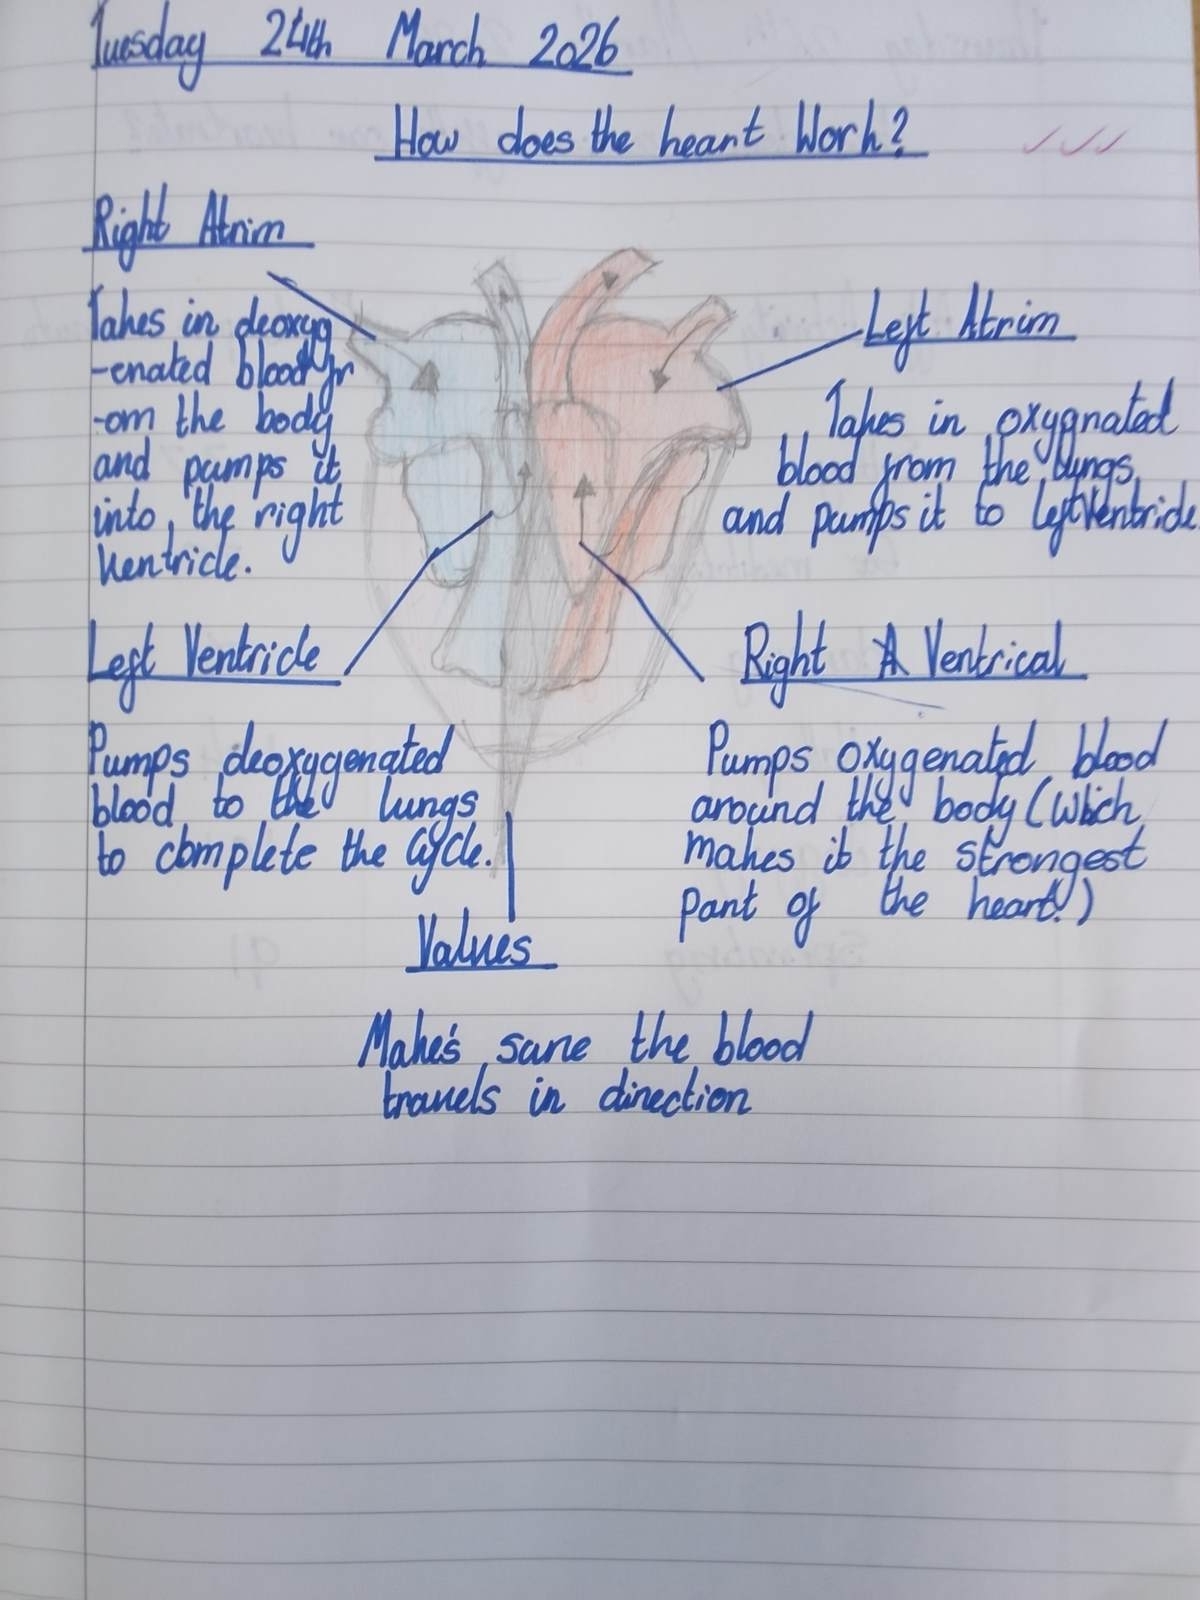 Tuesday 24th March 2026
How does the heart Work?
Right Atrim
Takes in deoxyg
-enated blood fr
-om the body
and pumps it
into, the right
Ventricle.
Left Atrim
Takes in oxygnated
blood from the lungs,
and pumps it to left Ventricle
Left Ventricle
Pumps deoxygenated
blood to the lungs
to complete the Cycle.
Right Ventrical
Pumps oxygenated blood
around the body (Which
makes it the strongest
part of the heart!)
Valves
Make's sure the blood
travels in direction